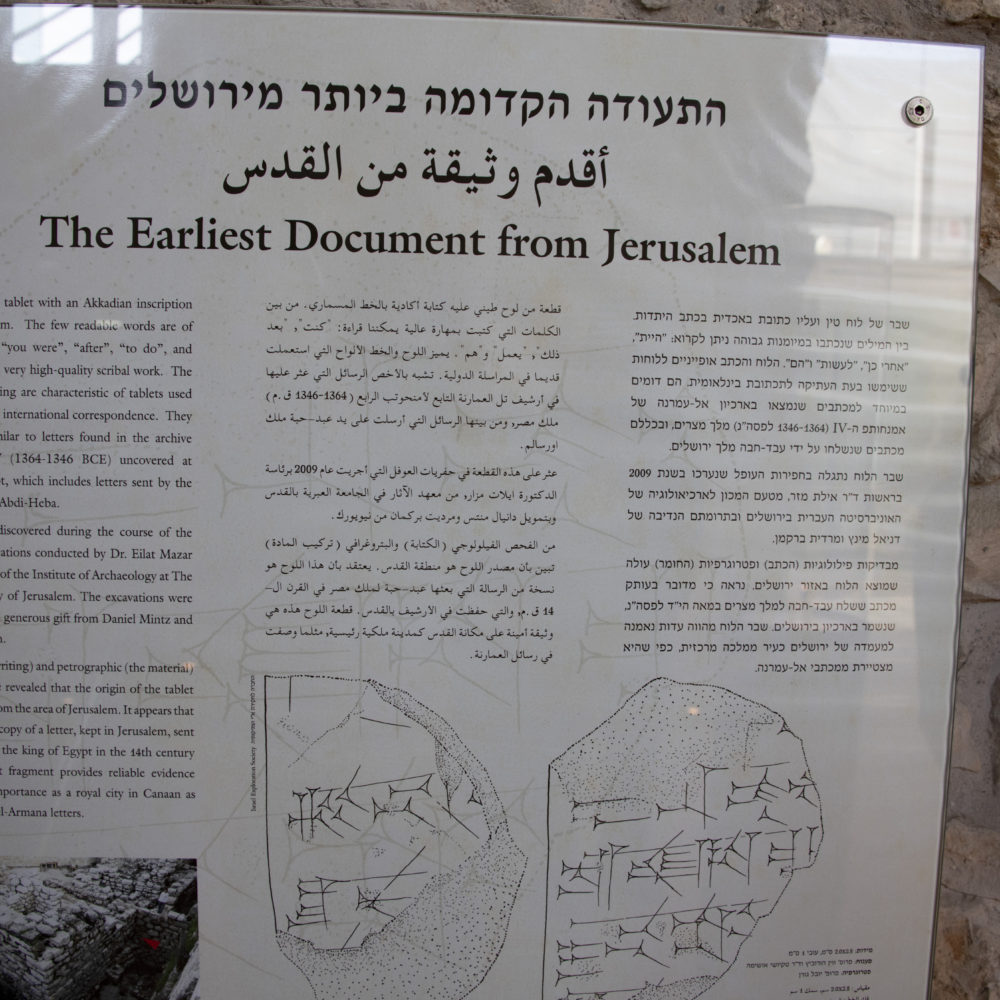 התעודה הקדומה ביותר מירושלים
أقدم وثيقة من القدس
The Earliest Document from Jerusalem
tablet with an Akkadian inscription
m. The few readable words are of
“you were”, “after”, “to do”, and
very high-quality scribal work. The
ing are characteristic of tablets used
international correspondence. They
milar to letters found in the archive
(1364-1346 BCE) uncovered at
t, which includes letters sent by the
Abdi-Heba.
discovered during the course of the
ations conducted by Dr. Eilat Mazar
of the Institute of Archaeology at The
y of Jerusalem. The excavations were
generous gift from Daniel Mintz and
n.
riting) and petrographic (the material)
revealed that the origin of the tablet
om the area of Jerusalem. It appears that
copy of a letter, kept in Jerusalem, sent
the king of Egypt in the 14th century
t fragment provides reliable evidence
mportance as a royal city in Canaan as
l-Armana letters.
قطعة من لوح طيني عليه كتابة أكادية بالخط المسماري. من بين
الكلمات التي كتبت بمهارة عالية يمكننا قراءة: "كنت", "بعد
ذلك", "يعمل" و"هم". يميز اللوح والخط الألواح التي استعملت
قديما في المراسلة الدولية. تشبه بالأخص الرسائل التي عثر عليها
في أرشيف تل العمارنة التابع لامنحوتب الرابع (1364-1346 ق.م)
ملك مصر, ومن بينها الرسائل التي أرسلت على يد عبد-حبة ملك
اورسالم.
عثر على هذه القطعة في حفريات العوفل التي أجريت عام 2009 برئاسة
الدكتورة ايلات مزار, من معهد الآثار في الجامعة العبرية بالقدس
وبتمويل دانيال منتس ومرديت بركمان من نيويورك.
من الفحص الفيلولوجي (الكتابة) والبتروغرافي (تركيب المادة)
تبين بأن مصدر اللوح هو منطقة القدس. يعتقد بأن هذا اللوح هو
نسخة من الرسالة التي بعثها عبد-حبة لملك مصر في القرن الـ-
14 ق.م, والتي حفظت في الارشيف بالقدس. قطعة اللوح هذه هي
وثيقة أمينة على مكانة القدس كمدينة ملكية رئيسية, مثلما وصفت
في رسائل العمارنة.
שבר של לוח טין ועליו כתובת באכדית בכתב היתדות.
בין המילים שנכתבו במיומנות גבוהה ניתן לקרוא: "היית",
"אחרי כן", "לעשות" ו"הם". הלוח והכתב אופייניים ללוחות
ששימשו בעת העתיקה לתכתובת בינלאומית. הם דומים
במיוחד למכתבים שנמצאו בארכיון אל-עמרנה של
אמנחותפ ה-IV (1346-1364 לפסה"נ) מלך מצרים, ובכללם
מכתבים שנשלחו על ידי עבד-חבה מלך ירושלים.
שבר הלוח נתגלה בחפירות העופל שנערכו בשנת 2009
בראשות ד"ר אילת מזר, מטעם המכון לארכיאולוגיה של
האוניברסיטה העברית בירושלים ובתרומתם הנדיבה של
דניאל מינץ ומרדית ברקמן.
מבדיקות פילולוגיות (הכתב) ופטרוגרפיות (החומר) עולה
שמוצא הלוח באזור ירושלים. נראה כי מדובר בעותק
מכתב ששלח עבד-חבה למלך מצרים במאה הי"ד לפסה"נ,
שנשמר בארכיון בירושלים. שבר הלוח מהווה עדות נאמנה
למעמדה של ירושלים כעיר ממלכה מרכזית, כפי שהיא
מצטיירת ממכתבי אל-עמרנה.
Israel Exploration Society
מידות: 2.0X2.8 ס"מ, עובי 1 ס"מ